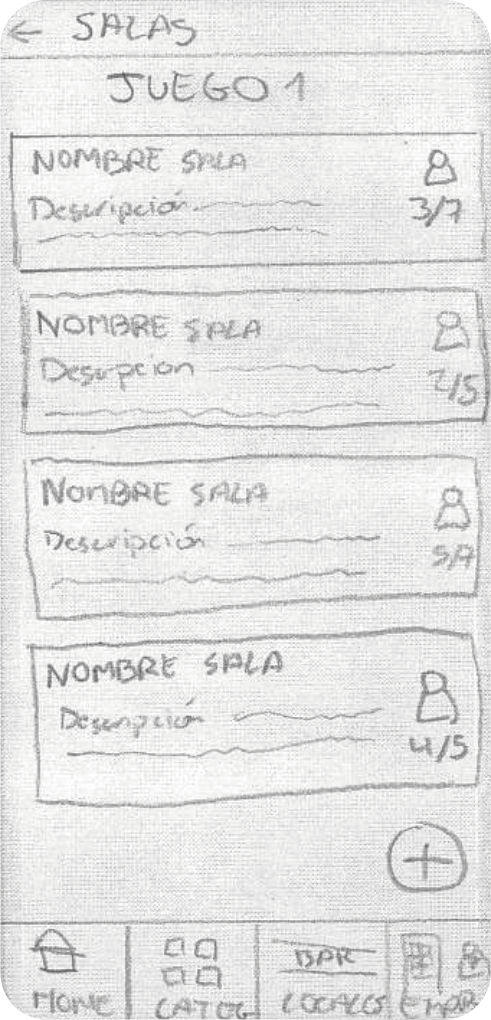 ← SALAS
JUEGO 1
NOMBRE SALA
Descripción
3/7
NOMBRE SALA
Desrpcion
2/5
NOMBRE SALA
Descripción
5/7
NOMBRE SALA
Descripción
4/5
+
HOME
CATEG
BAR
LOCALES
EMPR